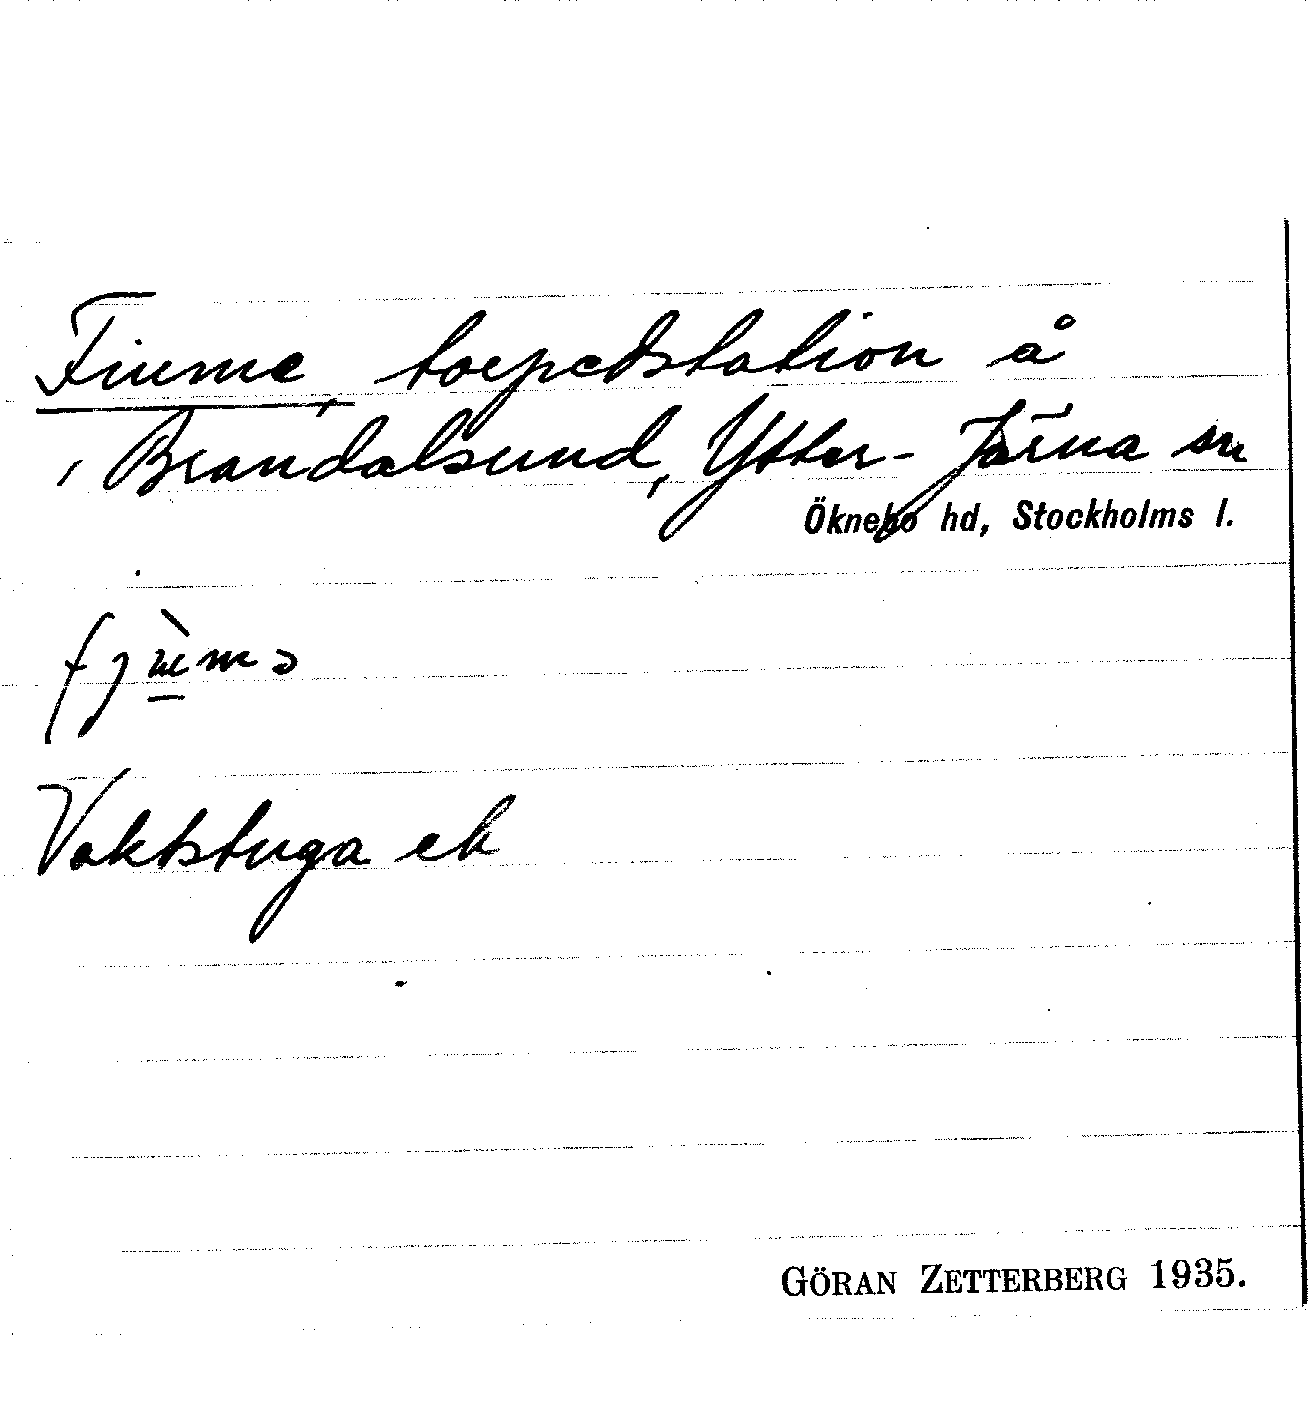 Fiume, torpedstation å
Brandalsund, Ytter-Järna sn
Öknebo hd, Stockholms l.
Vaktstuga
GÖRAN ZETTERBERG 1935.